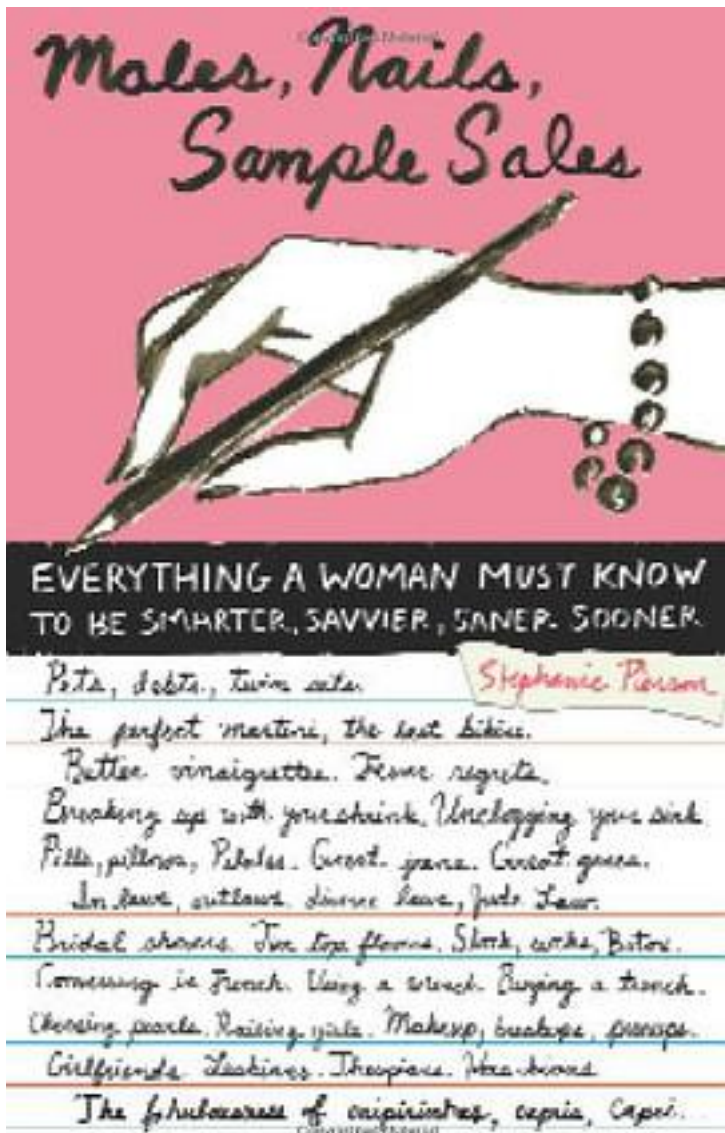 Males, Nails,
Sample Sales
EVERYTHING A WOMAN MUST KNOW
TO BE SMARTER, SAVVIER, SANER SOONER
Stephanie Pierson
Pets, debts, twin sets.
The perfect martini, the best bikini.
Better vinaigrettes. Fewer regrets.
Breaking up with your shrink. Unclogging your sink
Pills, pillows, Pilates. Great jeans. Great genes.
In laws, outlaws, divorce laws, Jude Law.
Bridal showers. Tin top flowers. Stock, Botox.
Conversing in French. Using a wrench. Buying a trench.
Choosing pearls. Raising girls. Makeup, breakups, prenups.
Girlfriends. Lesbians. Thespians.
The fabulousness of caipirinhas, capris, Capri.
Copyrighted Material